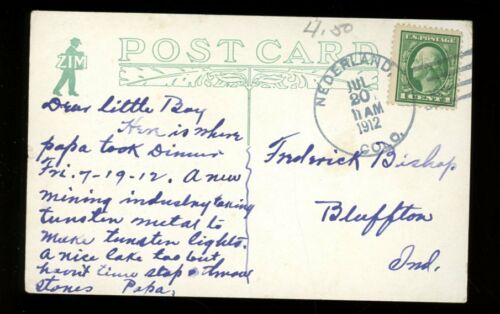 4.50
ZIM
POST CARD
U.S. POSTAGE
1 CENT 1
NEDERLAND,
JUL
20
11 AM
1912
COLO.
Dear little Boy
Here is where
papa took Dinner
Fri. 7-19-12. A new
mining industry taking
tunsten metal to
make tunsten lights.
A nice lake too but
havnt time stop & throw
stones Papa.
Frederick Bishop
Bluffton
Ind.